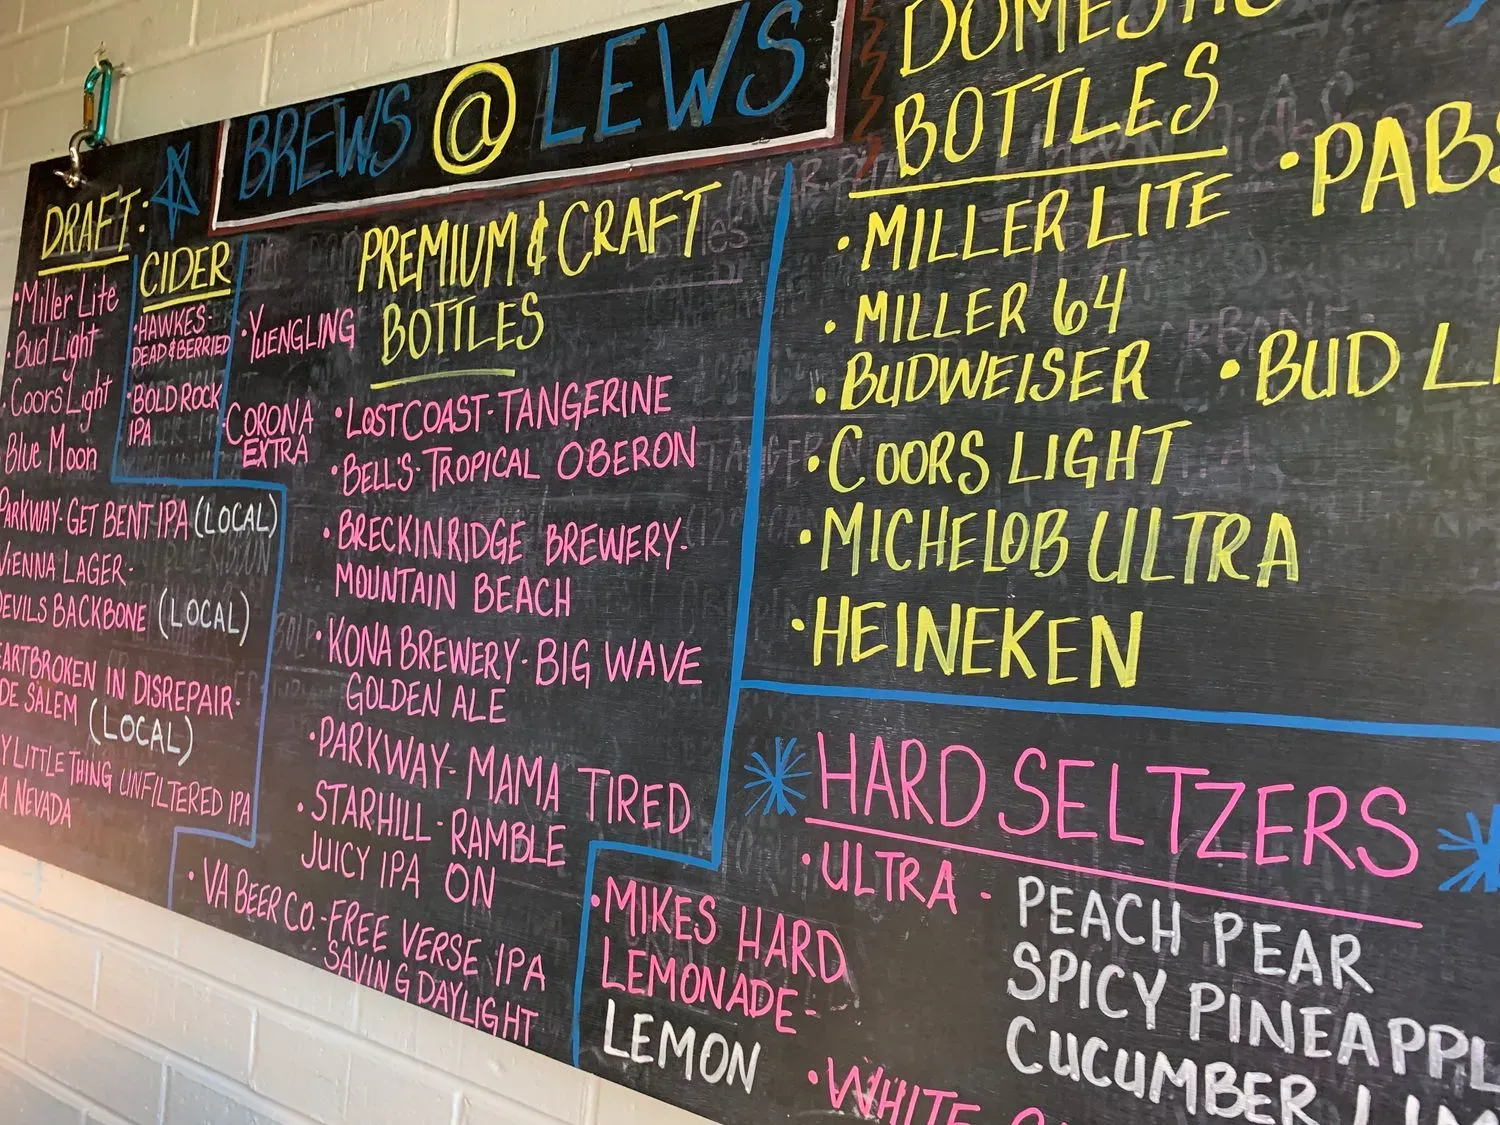 BREWS @ LEWS
DRAFT:
• Miller Lite
• Bud Light
• Coors Light
Blue Moon
PARKWAY - GET BENT IPA (LOCAL)
VIENNA LAGER -
DEVILS BACKBONE (LOCAL)
HEARTBROKEN IN DISREPAIR -
SALEM (LOCAL)
LITTLE THING UNFILTERED IPA
NEVADA
CIDER
• HAWKES -
DEAD & BERRIED
• BOLD ROCK
IPA
PREMIUM & CRAFT
BOTTLES
• YUENGLING
• CORONA
EXTRA
• LOSTCOAST - TANGERINE
• BELL'S - TROPICAL OBERON
• BRECKINRIDGE BREWERY -
MOUNTAIN BEACH
• KONA BREWERY - BIG WAVE
GOLDEN ALE
• PARKWAY - MAMA TIRED
• STARHILL - RAMBLE
JUICY IPA ON
• VA BEER CO. - FREE VERSE IPA
SAVING DAYLIGHT
BOTTLES
• MILLER LITE
• MILLER 64
• BUDWEISER
• COORS LIGHT
• MICHELOB ULTRA
• HEINEKEN
• BUD
HARD SELTZERS
• ULTRA - PEACH PEAR
SPICY
CUCUMBER
• MIKES HARD
LEMONADE -
LEMON
• WHITE